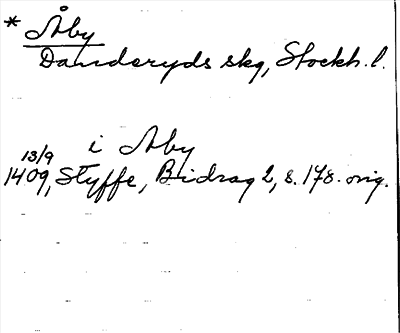 * Åby
Danderyds skg, Stockh. l.
i Åby
13/9
1409, Styffe, Bidrag 2, s. 178. orig.